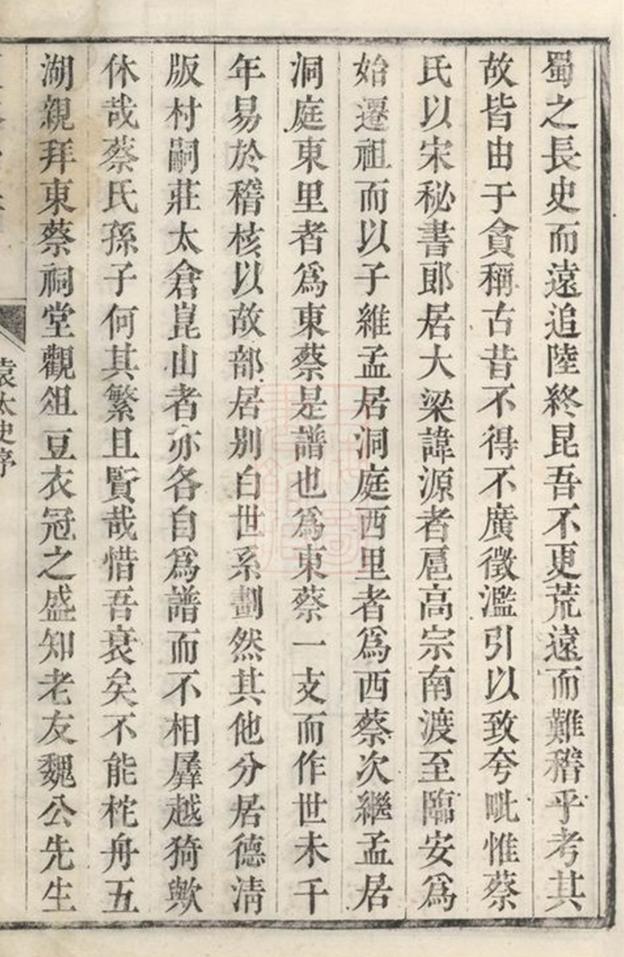 蜀之長史而遠追陸終昆吾不更荒遠而難稽乎考其
故皆由于貪稱古昔不得不廣徵濫引以致夸毗惟蔡
氏以宋秘書郎居大梁諱源者扈高宗南渡至臨安爲
始遷祖而以子維孟居洞庭西里者爲西蔡次繼孟居
洞庭東里者爲東蔡是譜也爲東蔡一支而作世未千
年易於稽核以故部居別白世系劃然其他分居德清
版村嗣莊太倉崑山者亦各自爲譜而不相羼越猗歟
休哉蔡氏孫子何其繁且賢哉惜吾衰矣不能柁舟五
湖親拜東蔡祠堂觀俎豆衣冠之盛知老友魏公先生
袁太史序